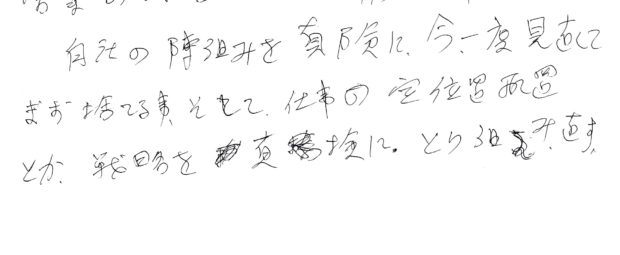 自社の陣組みを真険に、今一度見直して
まず捨てる事、そして、仕事の定位置配置
とか、戦略を真険に。とり組み直す、